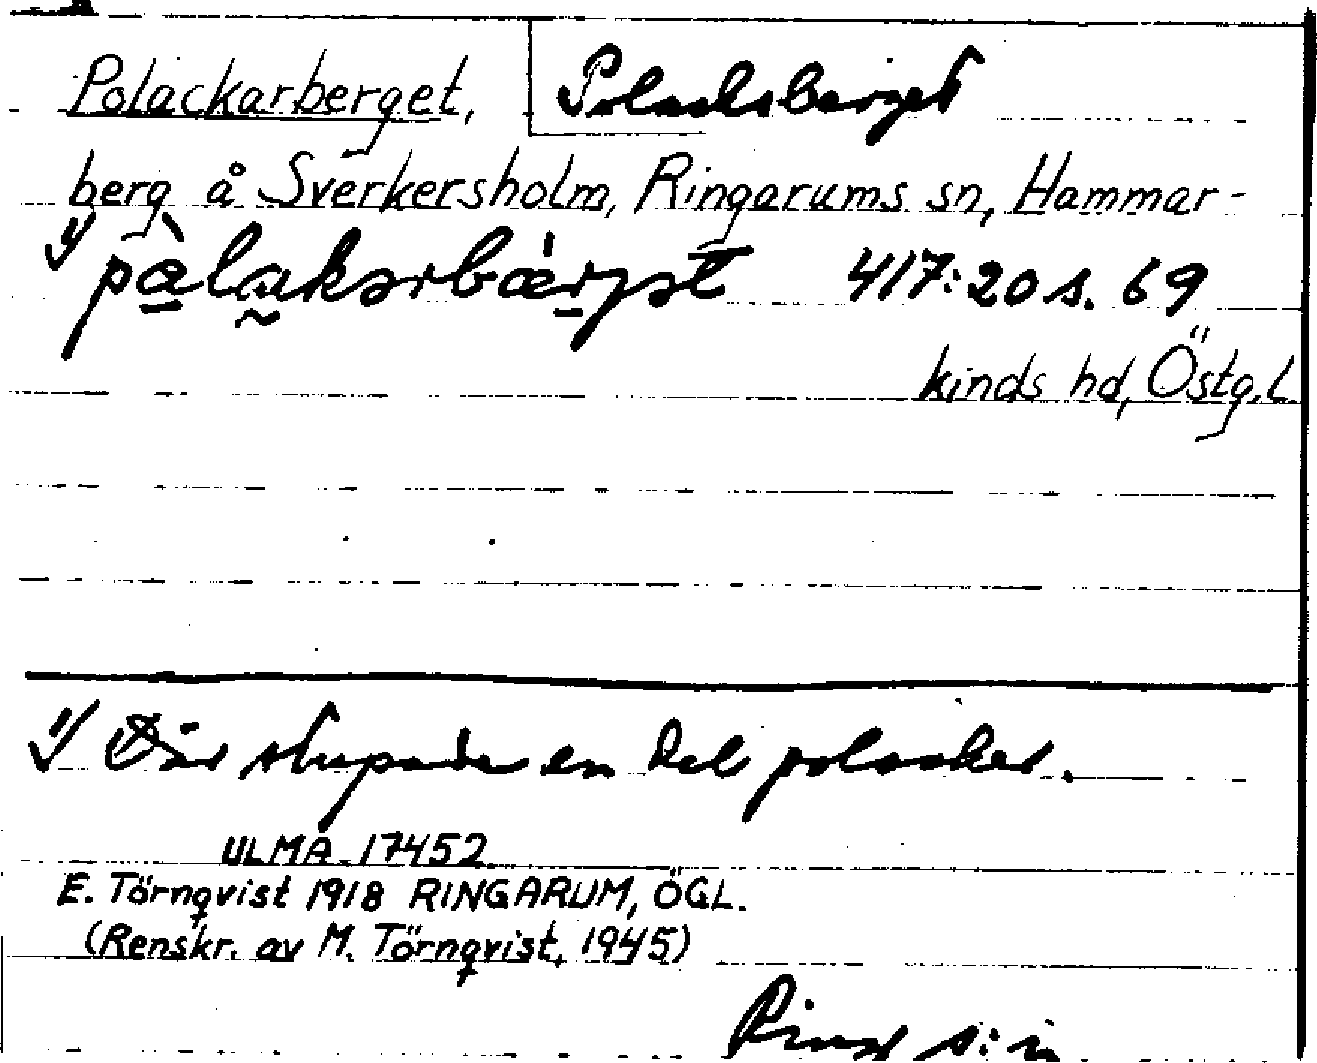 Polackarberget, Polacksberget
berg å Sverkersholm, Ringarums sn, Hammar-
1) pàlakərbærjət 417:20 s. 69
kinds hd, Östg.l
1) Där stupade en del polacker.
ULMA 17452
E. Törnqvist 1918 RINGARUM, ÖGL.
(Renskr. av M. Törnqvist, 1945)